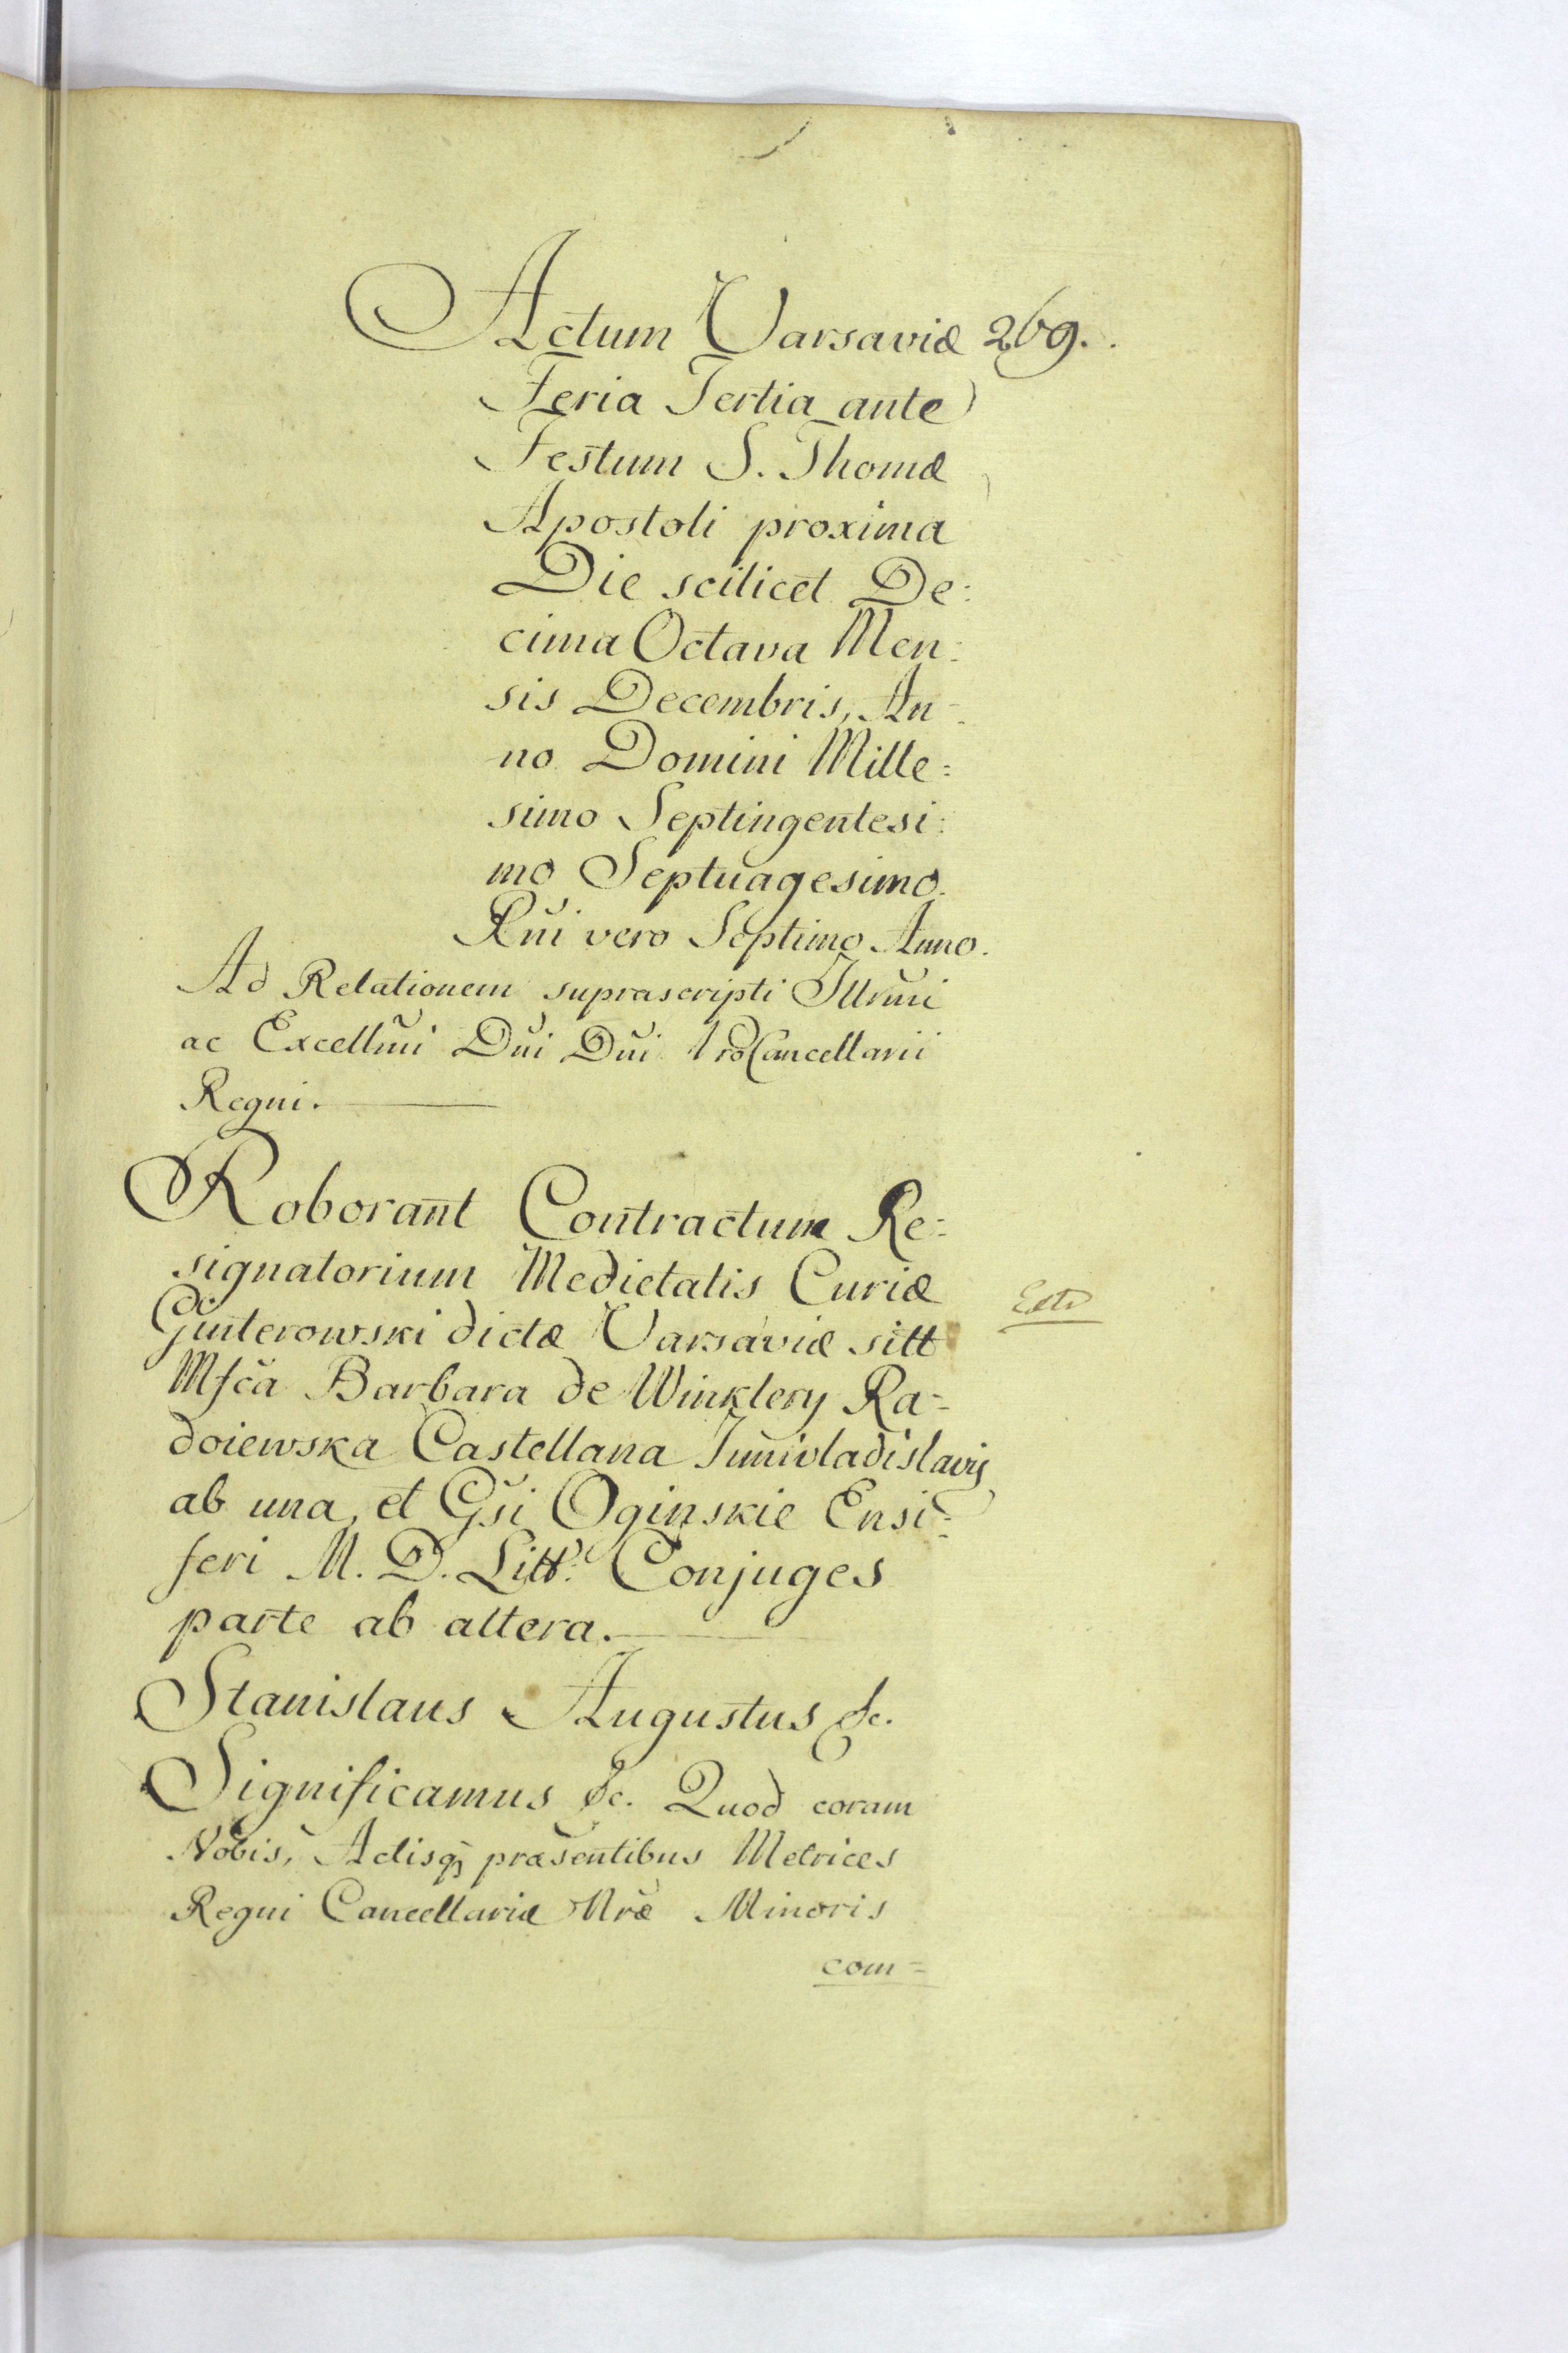 Actum Varsaviæ 269.
Feria Tertia ante
Festum S. Thomæ
Apostoli proxima
Die scilicet De:
cima Octava Men:
sis Decembris, An:
no Domini Mille:
simo Septingentesi:
mo Septuagesimo.
Rñi vero Septimo Anno.
Ad Relationem suprascripti Illrmi
ac Excellmi Dñi Dñi ProCancellarii
Regni.
Roborant Contractum Re:
signatorium Medietatis Curiæ
Ginterowski dictæ Varsaviæ sitt
Mfca Barbara de Winklery Ra:
doiewska Castellana Junivladislavis
ab una, et Gsi Oginskie Ensi:
feri M. D. Litt. Conjuges
parte ab altera.
Stanislaus Augustus &c.
Significamus &c. Quod coram
Nobis, Actisq præsentibus Metrices
Regni Cancellariæ Nræ Minoris
com=